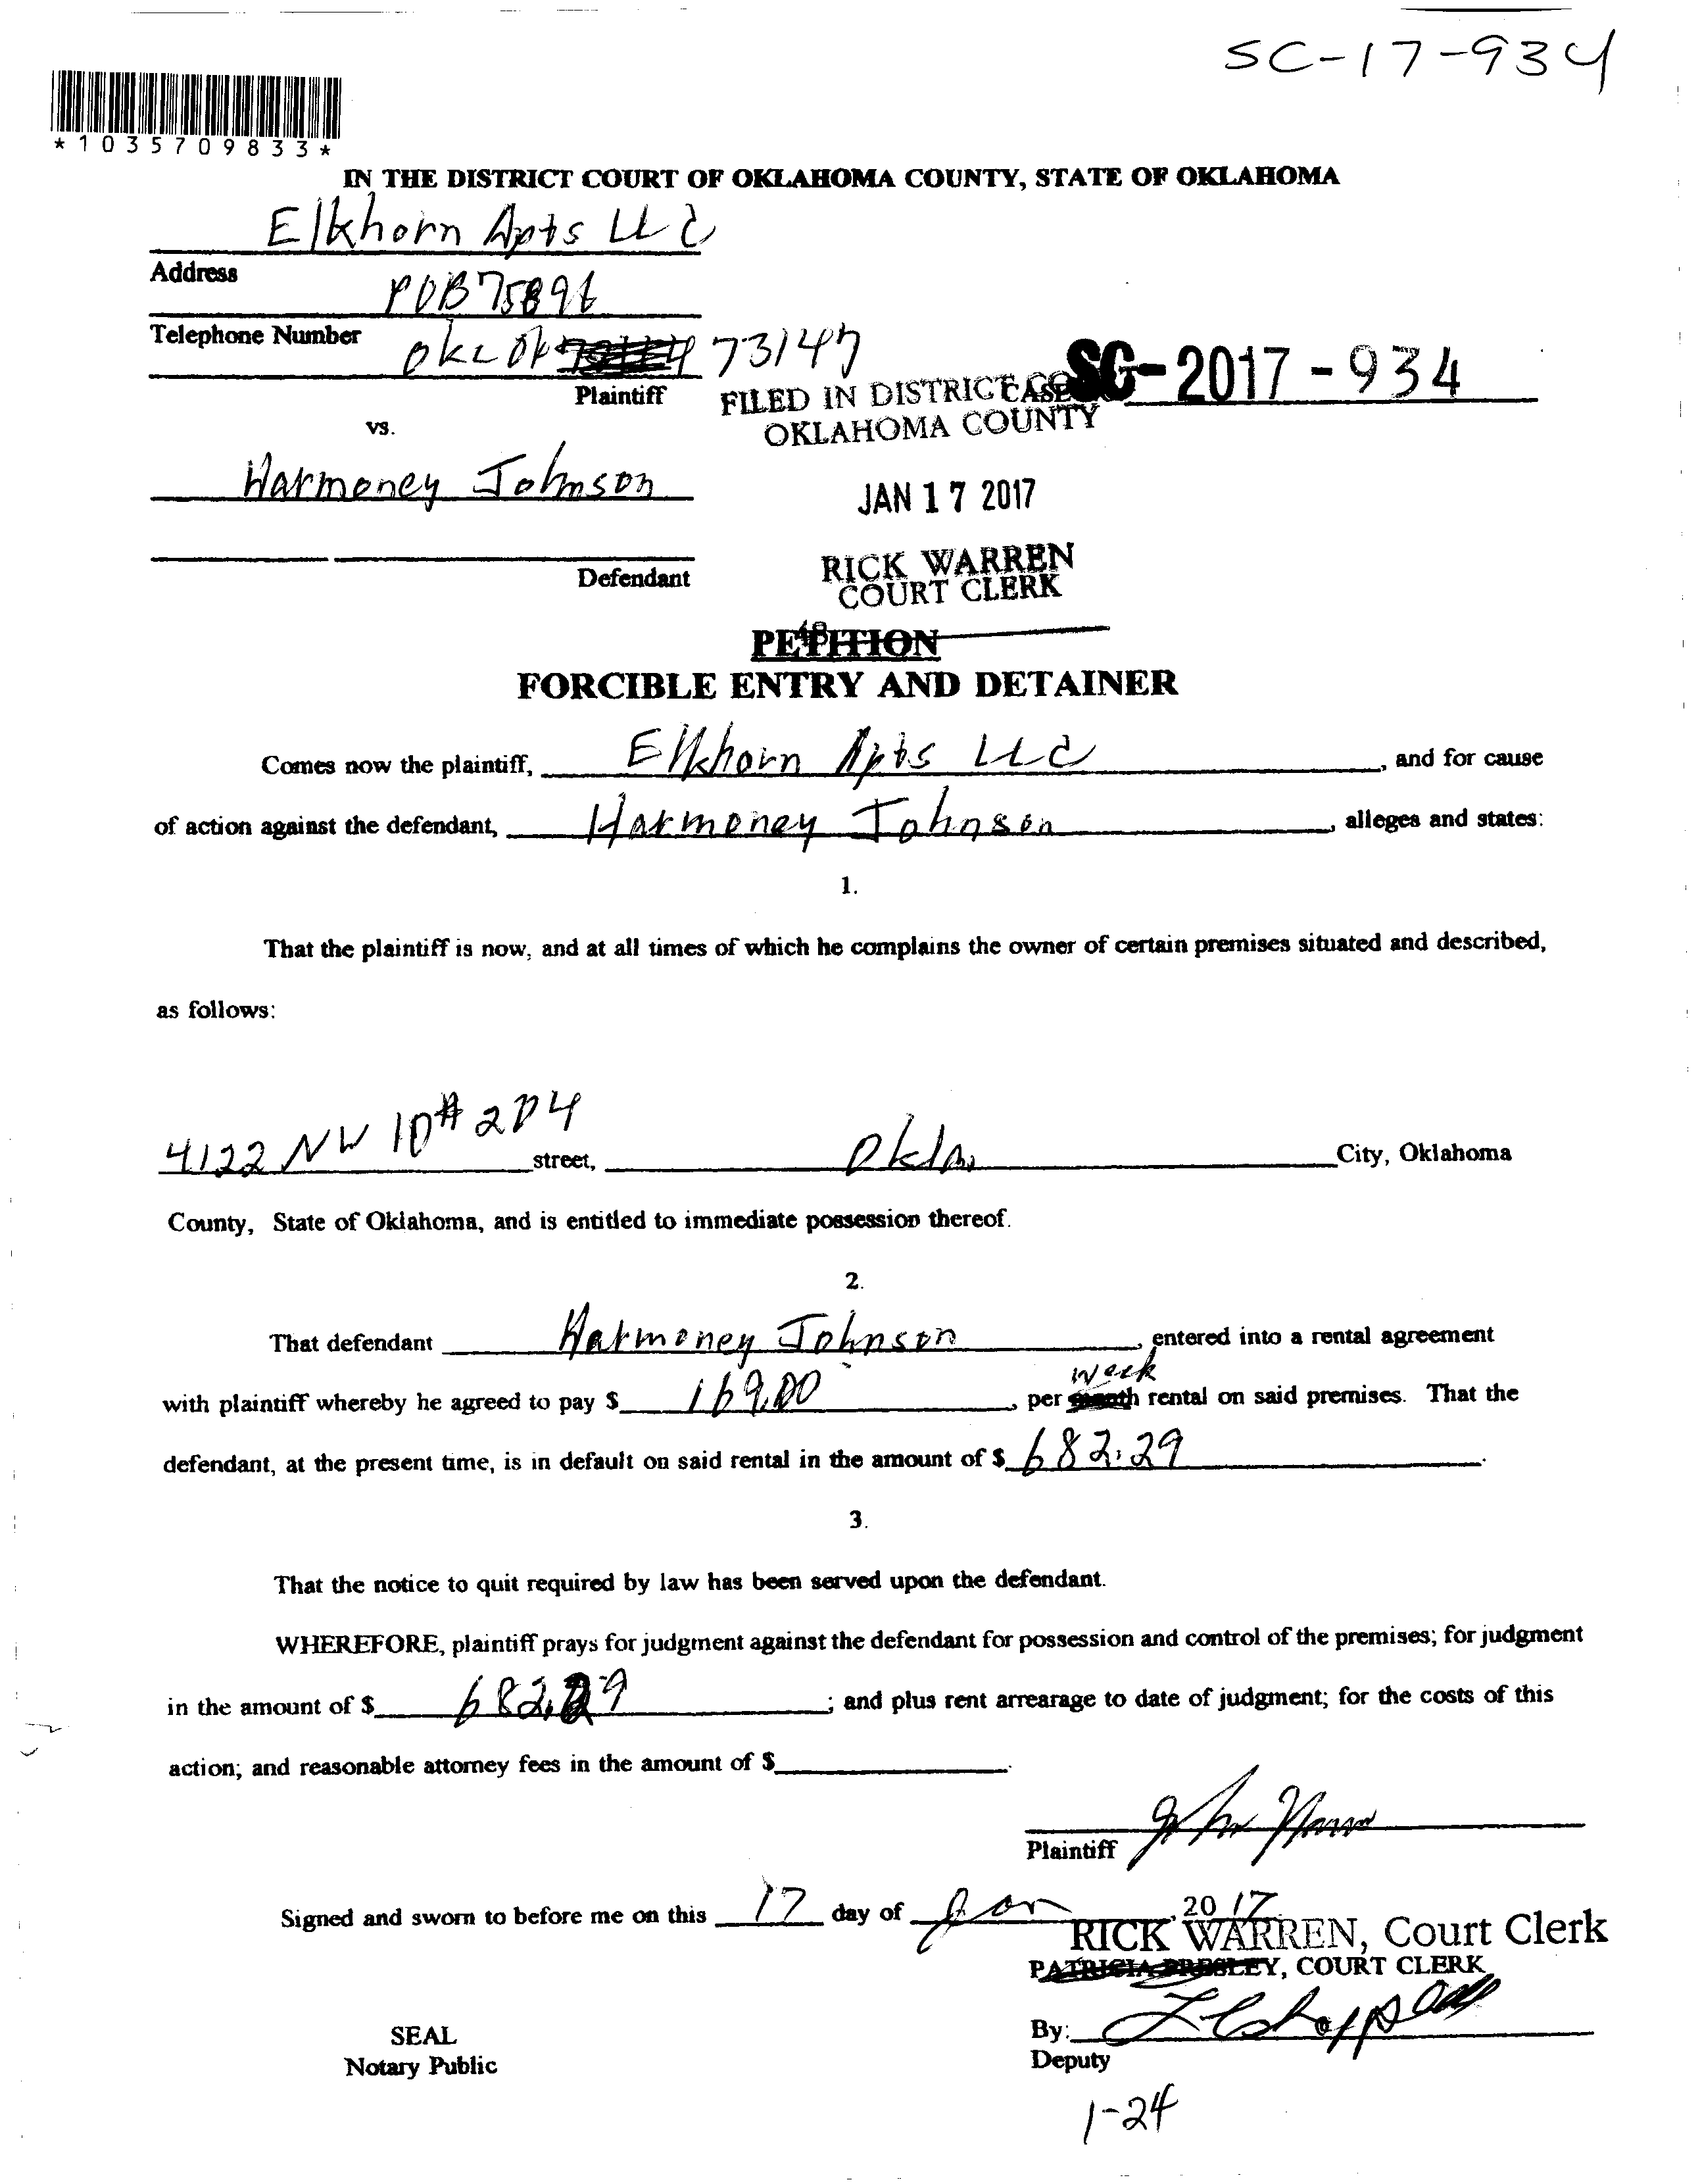 SC-17-934
*1035709833*
IN THE DISTRICT COURT OF OKLAHOMA COUNTY, STATE OF OKLAHOMA
Elkhorn Apts LLC
Address
POB 75896
Telephone Number
OKC OK 73147
Plaintiff
FILED IN DISTRICT CASE SC-2017-934
OKLAHOMA COUNTY
vs.
Harmoney Johnson
JAN 17 2017
Defendant
RICK WARREN
COURT CLERK
48
PETITION
FORCIBLE ENTRY AND DETAINER
Comes now the plaintiff, Elkhorn Apts LLC, and for cause
of action against the defendant, Harmoney Johnson, alleges and states:
1.
That the plaintiff is now, and at all times of which he complains the owner of certain premises situated and described,
as follows:
4122 NW 10 # 204 street, Okla. City, Oklahoma
County, State of Oklahoma, and is entitled to immediate possession thereof.
2.
That defendant Harmoney Johnson, entered into a rental agreement
week
with plaintiff whereby he agreed to pay $ 169.00, per month rental on said premises. That the
defendant, at the present time, is in default on said rental in the amount of $ 682.29.
3.
That the notice to quit required by law has been served upon the defendant.
WHEREFORE, plaintiff prays for judgment against the defendant for possession and control of the premises; for judgment
in the amount of $ 682.29; and plus rent arrearage to date of judgment; for the costs of this
action; and reasonable attorney fees in the amount of $
Plaintiff
Signed and sworn to before me on this 17 day of Jan, 2017
RICK WARREN, Court Clerk
PATRICIA PRESLEY, COURT CLERK
By:
SEAL
Deputy
Notary Public
1-24